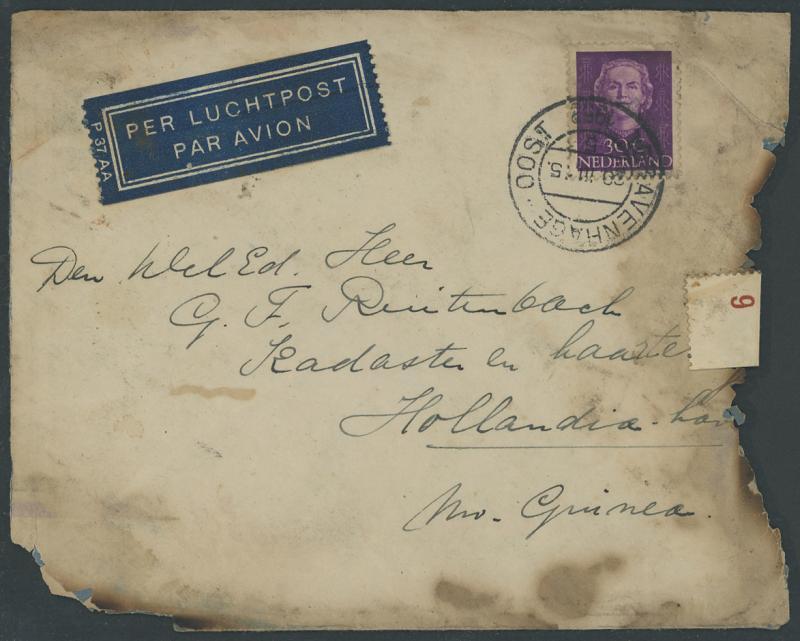 PER LUCHTPOST
PAR AVION
P 37 AA
30
NEDERLAND
AVENHAGE - OOST
1953
Den Wel Ed. Heer
G. F. Reitenbach
Kadaster en kaarte
Hollandia-hav
Nw. Guinea.
9